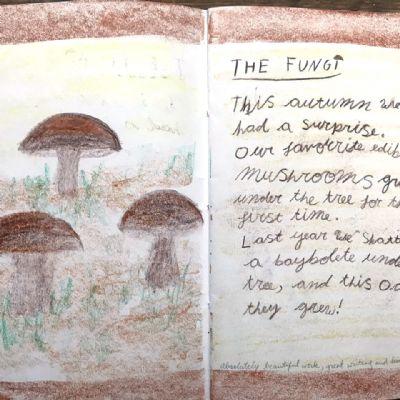 THE FUNGI
This autumn we
had a surprise.
Our favourite edib
mushrooms gr
under the tree for th
first time.
Last year we
a baybolete unde
tree, and this
they grew!
absolutely beautiful work, great writing and